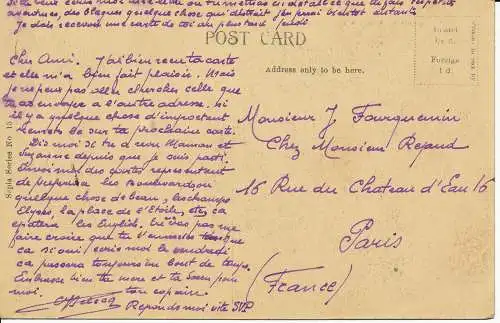 Si tu veux écris moi
Je dois recevoir une carte de toi au plus tard jeudi
POST CARD
Address only to be here.
Inland
½ d.
Foreign
1 d.
Sepia Series No 15
Cher Ami. J'ai bien recu ta carte
et elle m'a bien fait plaisir. Mais
je ne peux pas aller chercher celle que
tu as envoyé a l'autre adresse. Si
il y a quelque chose d'important
remets le sur ta prochaine carte.
Dis moi si tu a vu Maman et
Suzanne depuis que je suis parti.
Envoi moi des cartes representant
de preference les Boulevards ou
quelque chose de beau, les champs
Elysés, la place de l'Etoile, etc ca
epatera les English.
faire croire que tu
ca si oui! ecris moi le vendredi
ca passera toujours un bout de temps.
Embrasse bien ta mere et ta soeur pour
moi.
ton copain.
Reponds moi vite SVP
Monsieur J Fourquemin
Chez Monsieur Repaud
16 Rue du Chateau d'Eau 16
Paris
(France)